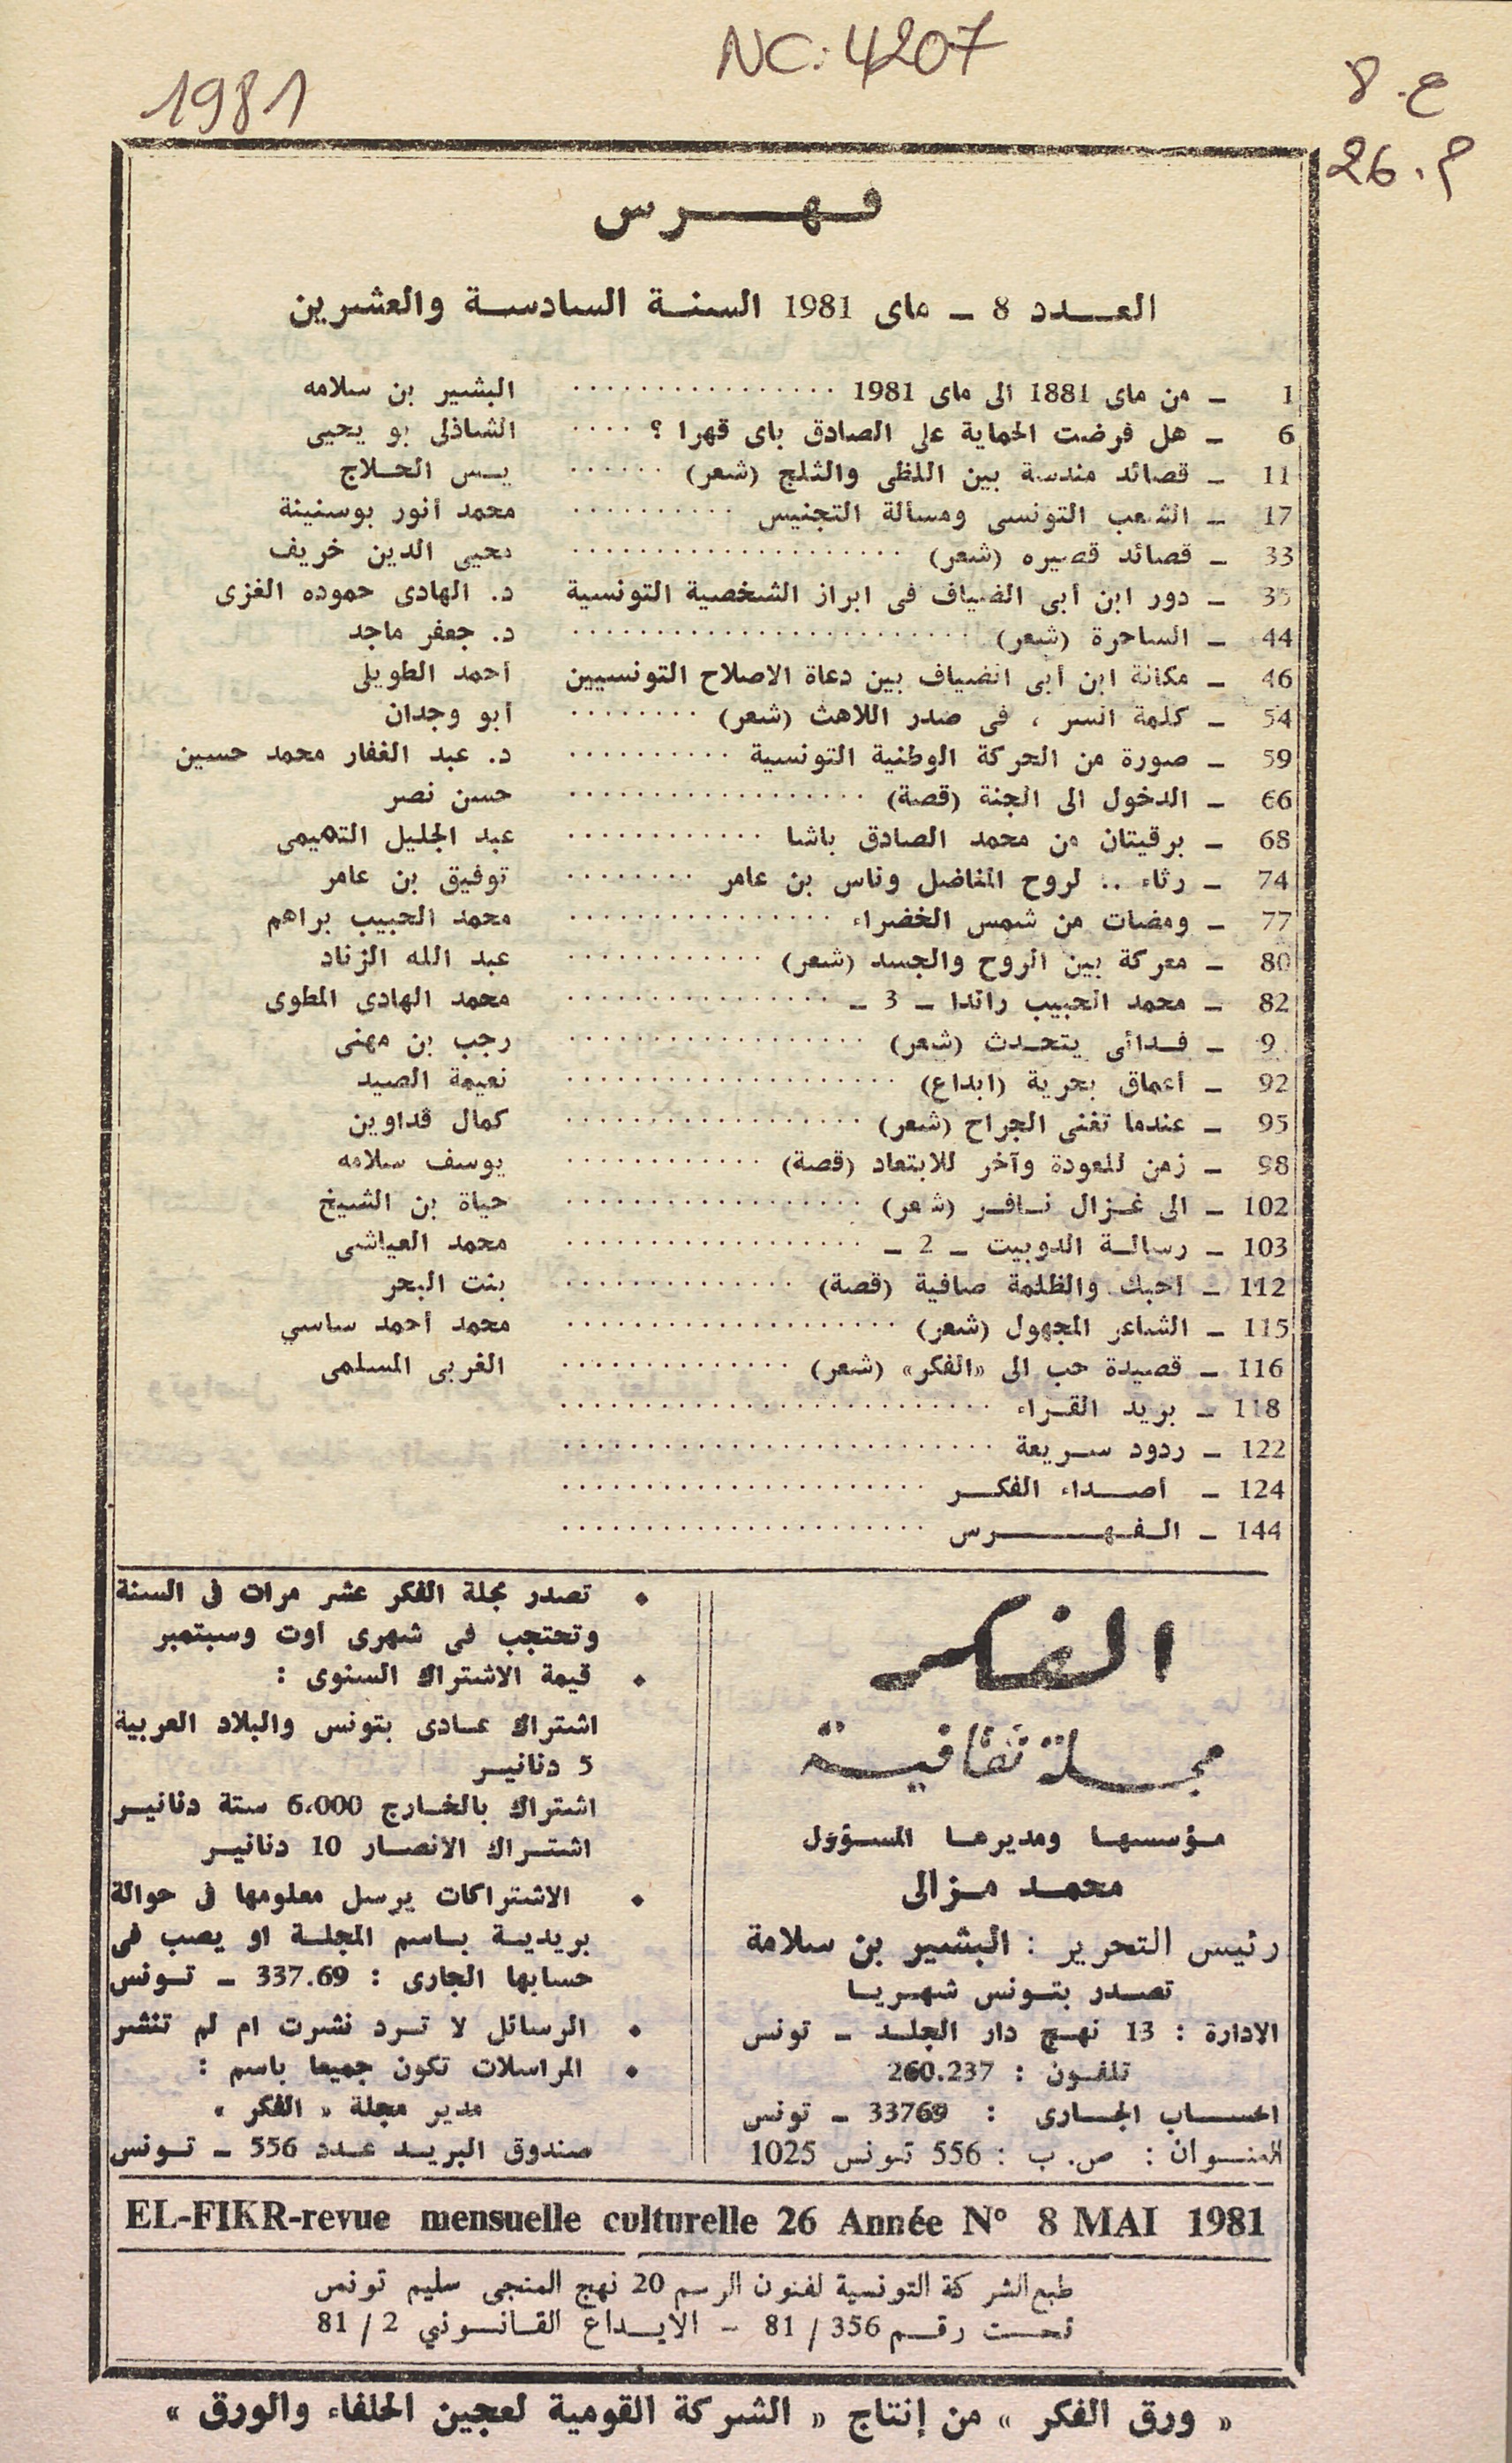 NC: 4207
1981
ع. 8
م. 26
فهرس
العدد 8 ـ ماى 1981 السنة السادسة والعشرين
1 ـ من ماى 1881 الى ماى 1981 ................ البشير بن سلامه
6 ـ هل فرضت الحماية على الصادق باى قهرا ؟ .... الشاذلى بو يحيى
11 ـ قصائد مندسة بين اللظى والثلج (شعر) ...... يس الحلاج
17 ـ الشعب التونسى ومسألة التجنيس .......... محمد أنور بوسنينة
33 ـ قصائد قصيره (شعر) .................... محيى الدين خريف
35 ـ دور ابن أبى الضياف فى ابراز الشخصية التونسية د. الهادى حموده الغزى
44 ـ الساحرة (شعر) ........................ د. جعفر ماجد
46 ـ مكانة ابن أبى الضياف بين دعاة الاصلاح التونسيين أحمد الطويلى
54 ـ كلمة السر ، فى صدر اللاهث (شعر) ........ أبو وجدان
59 ـ صورة من الحركة الوطنية التونسية .......... د. عبد الغفار محمد حسين
66 ـ الدخول الى الجنة (قصة) .................. حسن نصر
68 ـ برقيتان من محمد الصادق باشا ............ عبد الجليل التميمى
74 ـ رثاء .. لروح المناضل وناس بن عامر ........ توفيق بن عامر
77 ـ ومضات من شمس الخضراء ................ محمد الحبيب براهم
80 ـ معركة بين الروح والجسد (شعر) ............ عبد الله الزناد
82 ـ محمد الحبيب رائدا ـ 3 ـ ................ محمد الهادى المطوى
9 ـ فدائى يتحدث (شعر) .................. رجب بن مهنى
92 ـ أعماق بحرية (ابداع) .................... نعيمة الصيد
95 ـ عندما تغنى الجراح (شعر) .................. كمال قداوين
98 ـ زمن للعودة وآخر للابتعاد (قصة) ............ يوسف سلامه
102 ـ الى غزال نافر (شعر) .................. حياة بن الشيخ
103 ـ رسالة الدوبيت ـ 2 ـ .................. محمد العياشى
112 ـ احبك والظلمة صافية (قصة) .............. بنت البحر
115 ـ الشاعر المجهول (شعر) .................... محمد أحمد ساسي
116 ـ قصيدة حب الى «الفكر» (شعر) .............. الغربى المسلمى
118 ـ بريد القراء ..........................
122 ـ ردود سريعة ..........................
124 ـ أصداء الفكر ......................
144 ـ الفهرس ......................
الفكر
مجلة ثقافية
مؤسسها ومديرها المسؤول
محمد مزالى
رئيس التحرير : البشير بن سلامة
تصدر بتونس شهريا
الادارة : 13 نهج دار الجلد ـ تونس
تلفون : 260.237
الحساب الجارى : 33769 ـ تونس
العنوان : ص. ب : 556 تونس 1025
• تصدر مجلة الفكر عشر مرات فى السنة
وتحتجب فى شهرى أوت وسبتمبر
• قيمة الاشتراك السنوى :
اشتراك عادى بتونس والبلاد العربية
5 دنانير
اشتراك بالخارج 6،000 ستة دنانير
اشتراك الانصار 10 دنانير
• الاشتراكات يرسل معلومها فى حوالة
بريدية باسم المجلة او يصب فى
حسابها الجارى : 337.69 ـ تونس
• الرسائل لا ترد نشرت ام لم تنشر
• المراسلات تكون جميعا باسم :
مدير مجلة « الفكر »
صندوق البريد عدد 556 ـ تونس
EL-FIKR-revue mensuelle culturelle 26 Année N° 8 MAI 1981
طبع الشركة التونسية لفنون الرسم 20 نهج المنجى سليم تونس
تحت رقم 356 / 81 - الايداع القانوني 2 / 81
« ورق الفكر » من إنتاج « الشركة القومية لعجين الحلفاء والورق »